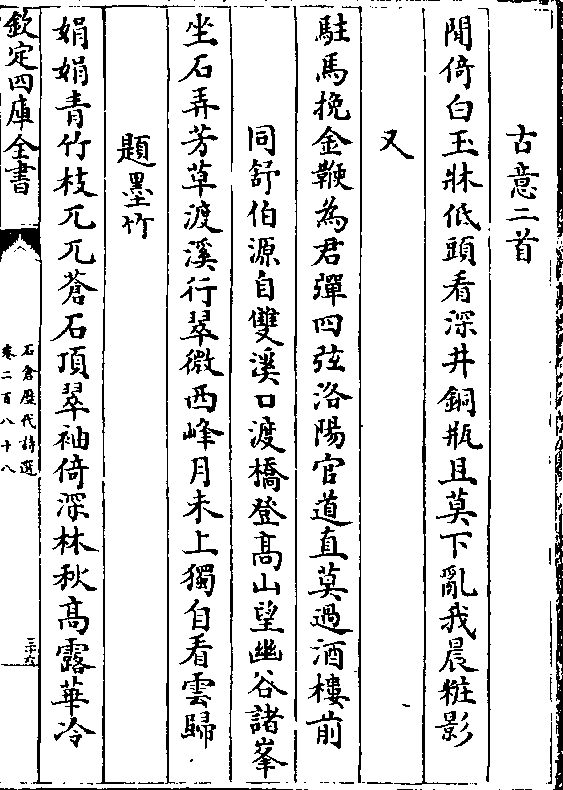 古意二首
閒倚白玉牀低頭看深井銅瓶且莫下亂我晨粧影
又
駐馬挽金鞭為君彈四弦洛陽官道直莫過酒樓前
同舒伯源自雙溪口渡橋登高山望幽谷諸峯
坐石弄芳草渡溪行翠微西峰月未上獨自看雲歸
題墨竹
娟娟青竹枝兀兀蒼石頂翠袖倚深林秋高露華冷
欽定四庫全書
石倉歷代詩選
卷二百八十八
三十五